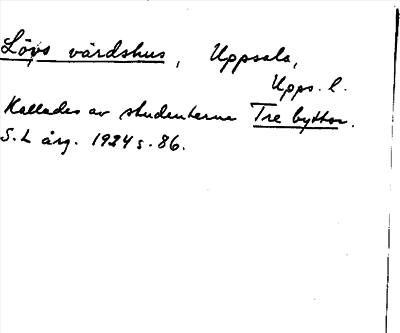 Lövs värdshus, Uppsala,
Upps. l.
Kallades av studenterna Tre byttor.
S.L årg. 1924 s. 86.